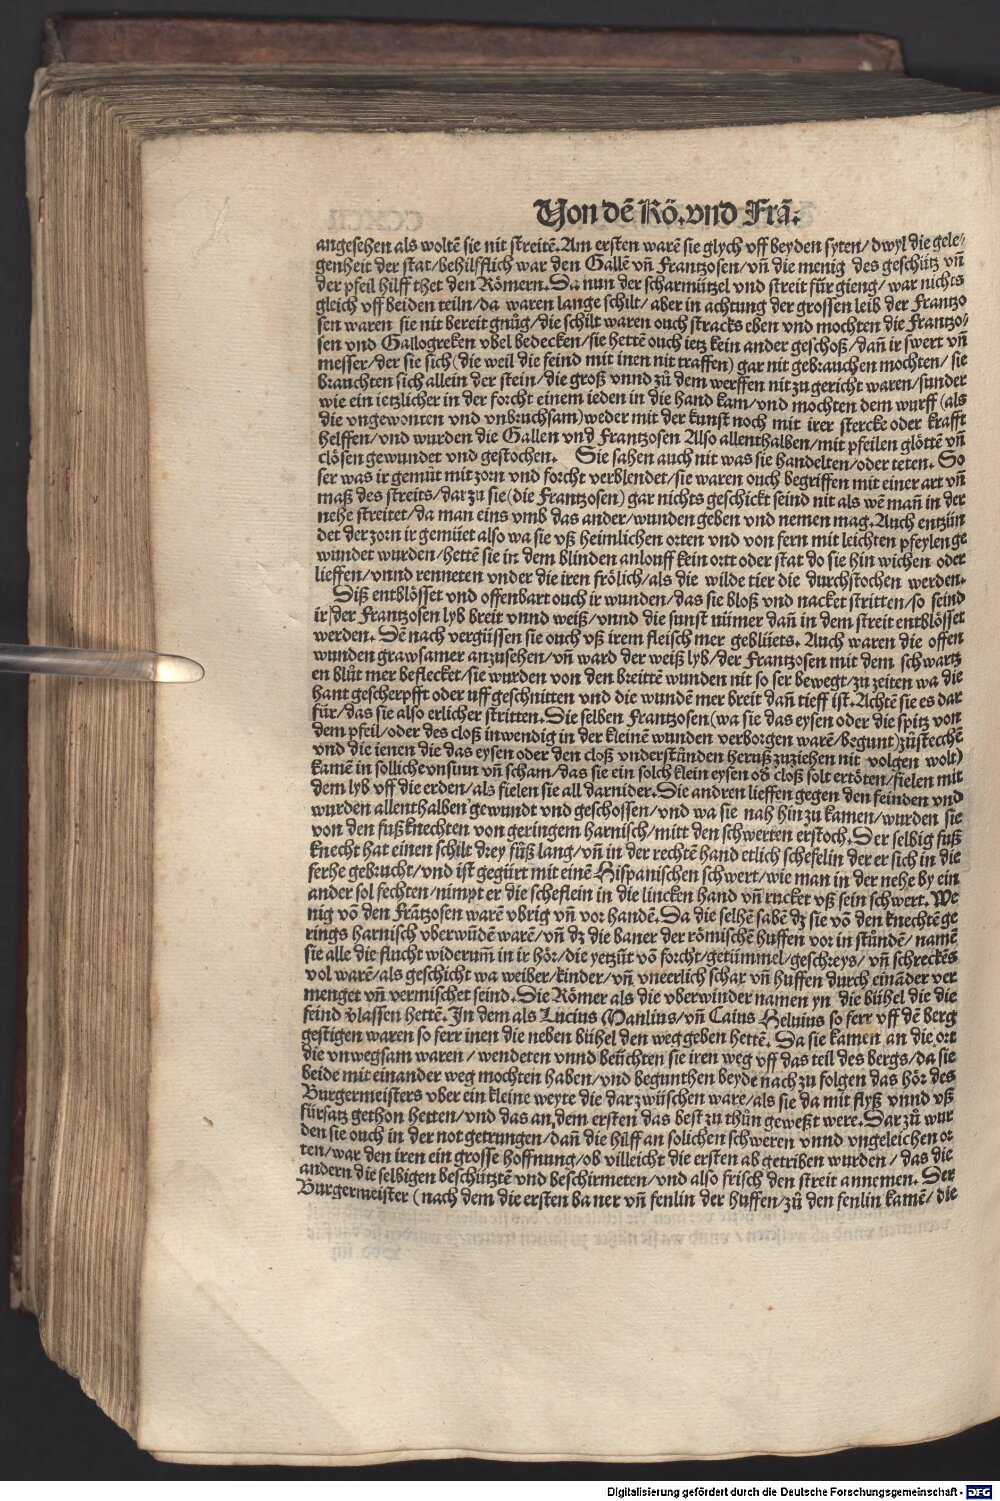 Von dē Rö. vnd Frā.
angesehen als woltē sie nit streitē. Am ersten warē sie glych vff beyden syten / dwyl die gele⸗
genheit der stat / behilfflich war den Gallē vn̄ Frantzosen / vn̄ die menig des geschütz vn̄
der pfeil hilff thet den Römern. Da nun der scharmützel vnd streit für gieng / war nichts
gleich vff beiden teiln / da waren lange schilt / aber in achtung der grossen leib der Frantzo
sen waren sie nit bereit gnůg / die schilt waren ouch stracks eben vnd mochten die Frantzo⸗
sen vnd Gallogreken vbel bedecken / sie hettē ouch ietz kein ander geschoß / dan̄ ir swert vn̄
messer / der sie sich (die weil die feind mit inen nit traffen) gar nit gebrauchen mochten / sie
brauchten sich allein der stein / die groß vnnd zů dem werffen nit zu gericht waren / sunder
wie ein ietzlicher in der forcht einem ieden in die hand kam / vnd mochten dem wurff (als
die vngewonten vnd vnbruchsam) weder mit der kunst noch mit irer stercke oder krafft
helffen / vnd wurden die Gallen vnd Frantzosen Also allenthalben / mit pfeilen glöttē vn̄
clösen gewundet vnd gestochen. Sie sahen auch nit was sie handelten / oder teten. So
ser was ir gemüt mit zorn vnd forcht verblendet / sie waren ouch begriffen mit einer art vn̄
maß des streits / dar zu sie (die Frantzosen) gar nichts geschickt seind nit als wē man̄ in der
nehe streitet / da man eins vmb das ander / wunden geben vnd nemen mag. Auch entzün
det der zorn ir gemüet also wa sie vß heimlichen orten vnd von fern mit leichten pfeylen ge
wundet wurden / hettē sie in dem blinden anlouff kein ortt oder stat do sie hin wichen oder
lieffen / vnnd renneten vnder die iren frölich / als die wilde tier die durchstochen werden.
Diß entblösset vnd offenbart ouch ir wunden / das sie bloß vnd nacket stritten / so seind
ir / der Frantzosen lyb breit vnnd weiß / vnnd die sunst nümer dan̄ in dem streit entblösset
werden. Dē nach vergüssen sie ouch vß irem fleisch mer geblüets. Auch waren die offen
wunden grawsamer anzusehen / vn̄ ward der weiß lyb / der Frantzosen mit dem schwartz
en blůt mer beflecket / sie wurden von den breittē wunden nit so ser bewegt / zu zeiten wa die
hant gescherpfft oder uff geschnitten vnd die wundē mer breit dan̄ tieff ist. Achtē sie es dar
für / das sie also erlicher stritten. Die selben Frantzosen (wa sie das eysen oder die spitz von
dem pfeil / oder des cloß inwendig in der kleinē wunden verborgen warē / begunt) zůstechē
vnd die ienen die das eysen oder den closs vnderstůnden heruß zuziehen nit volgen wolt)
kamē in solliche vnsunn vn̄ scham / das sie ein solch klein eysen od̄ cloß solt ertöten / fielen mit
dem lyb vff die erden / als fielen sie all darnider. Die andren lieffen gegen den feinden vnd
wurden allenthalben gewundt vnd geschossen / vnd wa sie nah hin zu kamen / wurden sie
von den fußknechten von geringem harnisch / mitt den schwerten erstoch. Der selbig fuß
knecht hat einen schilt drey fůß lang / vn̄ in der rechtē hand etlich schefelin der er sich in die
ferhe gebrucht / vnd ist gegürt mit einē Hispanischen schwert / wie man in der nehe by ein
ander sol fechten / nimpt er die scheflein in die lincken hand vn̄ rucket vß sein schwert. We
nig vō den Frātzosen warē vbrig vn̄ vor handē. Da die selhē sabē dz sie vō den knechtē ge
rings harnisch vberwūdē warē / vn̄ dz die baner der römischē huffen vor in stůndē / namē
sie alle die flucht widerum̄ in ir hör / die yetzūt vō forcht / getümmel / geschreys / vn̄ schreckēs
vol warē / als geschicht wa weiber / kinder / vn̄ vneerlich schar vn̄ huffen durch einād̄er ver
menget vn̄ vermischet seind. Die Römer als die vberwinder namen yn die bühel die die
feind v̄lassen hettē. In dem als Lucius Manlius / vn̄ Caius Heluius so ferr vff dē berg
gestigen waren so ferr inen die neben bühel den weg geben hettē. Da sie kamen an die ort
die vnwegsam waren / wendeten vnnd beüchten sie iren weg vff das teil des bergs / da sie
beide mit einander weg mochten haben / vnd begunthen beyde nach zu folgen das hör des
Burgermeisters vber ein kleine weyte die dar zwüschen ware / als sie da mit flyß vnnd vß
fürsatz gethon hetten / vnd das an dem ersten das best zu thůn geweßt were. Dar zů wur
den sie ouch in der not getrungen / dan̄ die hilff an solichen schweren vnnd vngeleichen or
ten / war den iren ein grosse hoffnung / ob villeicht die ersten ab getriben wurden / das die
andern die selbigen beschütztē vnd beschirmeten / vnd also frisch den streit annemen. Der
Burgermeister (nach dem die ersten baner vn̄ fenlin der huffen / zů den fenlin kamē / die
Digitalisierung gefördert durch die Deutsche Forschungsgemeinschaft - DFG